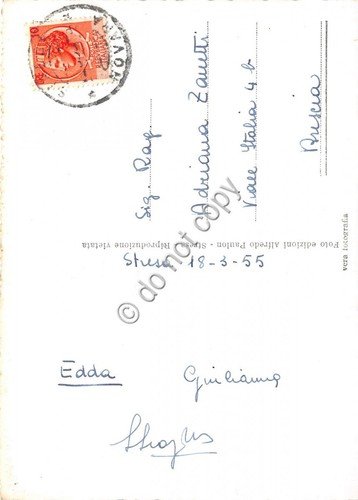 Sig. Rag.
Adriana Zanetti
Viale Italia 4 b
Brescia
Foto edizioni alfredo Paulon - Stresa - Riproduzione vietata
vera fotografia
Stresa 18-3-55
Edda
Giulianna
© do not copy